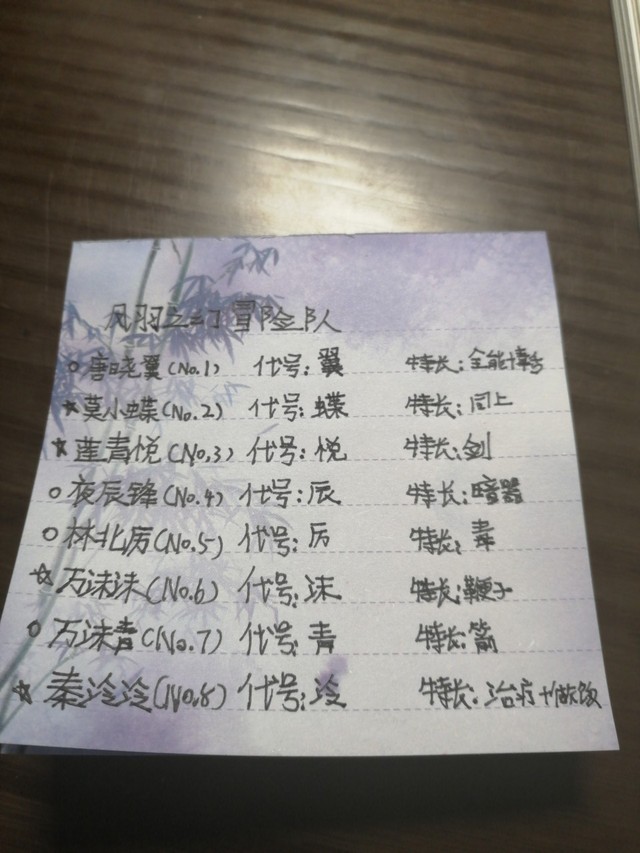 风羽之幻冒险队
○唐晓翼(No.1) 代号:翼 特长:全能
☆莫小蝶(No.2) 代号:蝶 特长:同上
☆莲青悦(No.3) 代号:悦 特长:剑
○夜辰锋(No.4) 代号:辰 特长:暗器
○林北厉(No.5) 代号:厉 特长:毒
☆万沫沫(No.6) 代号:沫 特长:鞭子
○万沫青(No.7) 代号:青 特长:箭
☆秦泠泠(No.8) 代号:泠 特长:治疗+做饭